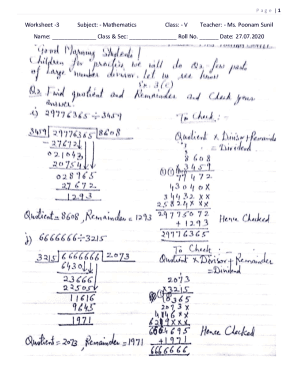 Page | 1
Worksheet -3 Subject: - Mathematics Class: - V Teacher: - Ms. Poonam Sunil
Name: Class & Sec: Roll No. Date: 27.07.2020
Good Morning Students!
Children for practice we will do Q2 few parts
of large number division. Let us see how
Ex. 3(c)
Q2. Find quotient and Remainder and Check your
answer.
i) 29776365 ÷ 3459
To Check:-
3459 29776365 8608
Quotient × Divisor + Remainder
= Dividend
-27672
021043
20754
028965
27672
1293
8608
3459
77472
43040×
34432××
25824×××
29775072
+1293
29776365
Quotient = 8608, Remainder = 1293 Hence Checked
j) 6666666 ÷ 3215
To Check:-
3215 6666666 2073
Quotient × Divisor + Remainder
= Dividend
6430
23666
22505
11616
9645
1971
2073
×3215
10365
2073×
4146××
6219×××
6664695
+1971
6666666
Hence Checked
Quotient = 2073, Remainder = 1971